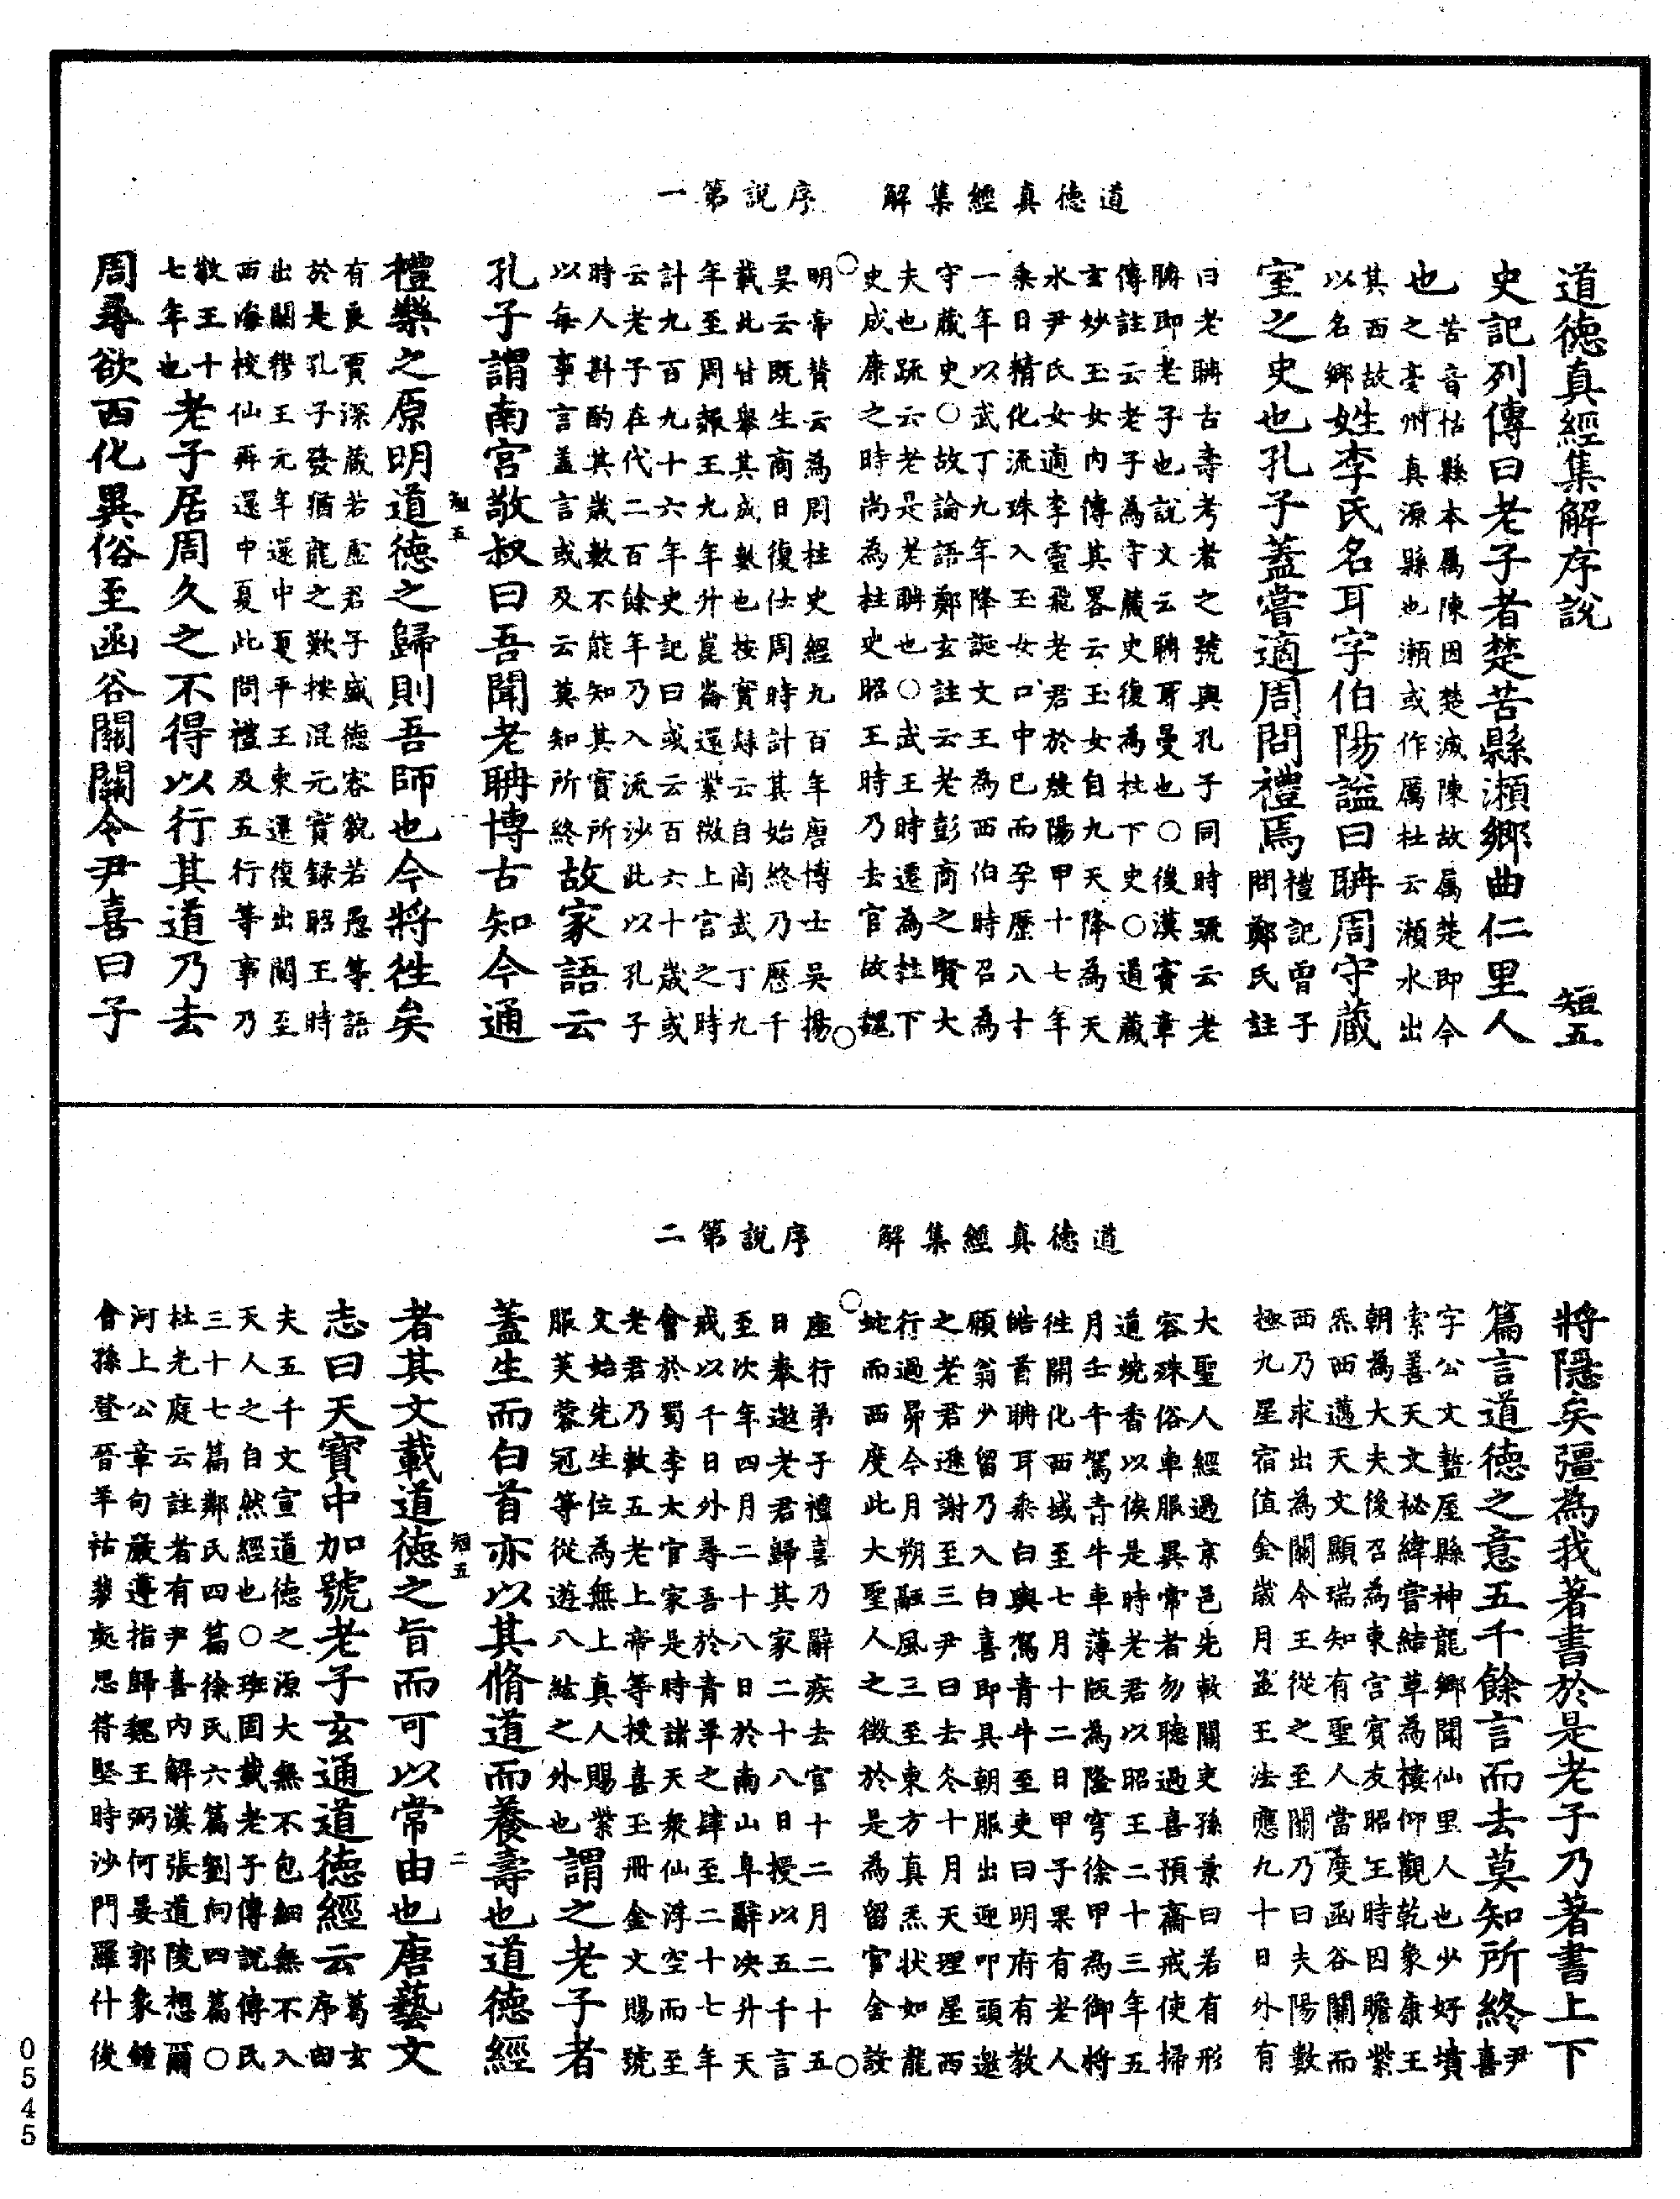 道德真經集解　序說第一
道德真經集解序說　短五
史記列傳曰老子者楚苦縣瀬鄉曲仁里人
也苦音怙縣本屬陳因楚滅陳故屬楚即今
之亳州真源縣也瀬或作厲杜云瀬水出
其西故以名鄉姓李氏名耳字伯陽諡曰聃周守藏
室之史也孔子蓋嘗適周問禮焉禮記曾子問鄭氏註
曰老聃古壽考者之號與孔子同時䟽云老
聃即老子也說文云聃耳曼也○後漢竇章
傳註云老子為守藏史復為柱下史○道藏
玄妙玉女內傳其畧云玉女自九天降為天
水尹氏女適李靈飛老君於殷陽甲十七年
乘日精化流珠入玉女口中已而孕歷八十
一年以武丁九年降誕文王為西伯時召為
守藏史○故論語鄭玄註云老彭商之賢大
夫也䟽云老是老聃也○武王時遷為柱下
史成康之時尚為柱史昭王時乃去官故魏
明帝贊云為周柱史經九百年唐博士吳揚
吴云既生商日復仕周時計其始終乃歷千
載此甘舉其成數也按實録云自商武丁九
年至周赧王九年升崑崙還紫微上言之時
計九百九十六年史記曰或云百六十歲或
云老子在代二百餘年乃入流沙此以孔子
時人斟酌其歲數不能知其實所
以每事言蓋言或及云莫知所終故家語云
孔子謂南宮敬叔曰吾聞老聃博古知今通
禮樂之原明道德之歸則吾師也今將徃矣
有良賈深藏若虛君子盛德容貌若愚等語
於是孔子發猶龍之歎按混元實録昭王時
出關穆王元年還中夏平王東遷復出關至
西海校仙再還中夏此問禮及五行等事乃
敬王十七年也老子居周久之不得以行其道乃去
周尋欲西化異俗至函谷關關令尹喜曰子
短五
道德真經集解　序說第二
將隱矣彊為我著書於是老子乃著書上下
篇言道德之意五千餘言而去莫知所終尹喜
字公文盩厔縣神龍鄉聞仙里人也少好墳
索善天文秘緯嘗結草為樓仰觀乾象康王
朝為大夫後召為東宮賓友昭王時因瞻紫
炁西邁天文顯瑞知有聖人當度函谷關而
西乃求出為關令王從之至關乃曰夫陽數
極九星宿值金歲月並王法應九十日外有
大聖人經過京邑先敕關吏孫景曰若有形
容殊俗車服異常者勿聽過喜預齋戒使掃
道燒香以俟是時老君以昭王二十三年五
月壬午駕青牛車薄版為隆穹徐甲為御將
往開化西域至七月十二日甲子果有老人
皓首聃耳乘白輿駕青牛至吏曰明府有教
願翁少留乃入白喜即具朝服出迎叩頭邀
之老君遜謝至三尹曰去冬十月天理星西
行過昴今月朔融風三至東方真炁狀如龍
蛇而西度此大聖人之徵於是為留官舍設
座行弟子禮喜乃辭疾去官十二月二十五
日奉邀老君歸其家二十八日授以五千言
至次年四月二十八日於南山阜辭决升天
戒以千日外尋吾於青羊之肆至二十七年
會於蜀李太官家是時諸天眾仙浮空而至
老君乃敕五老上帝等授喜玉冊金文賜號
文始先生位為無上真人賜紫
服芙蓉冠等從遊八紘之外也謂之老子者
蓋生而白首亦以其脩道而養壽也道德經
者其文載道德之旨而可以常由也唐藝文
志曰天寶中加號老子玄通道德經云葛玄序曰
夫五千文宣道德之源大無不包細無不入
天人之自然經也○班固載老子傳說傳氏
三十七篇鄰氏四篇徐氏六篇劉向四篇○
杜光庭云註者有尹喜內解漢張道陵想爾
河上公章句嚴遵指歸魏王弼何晏郭象鍾
會孫登晉羊祜裴楚恩苻堅時沙門羅什後
短五
二
0545